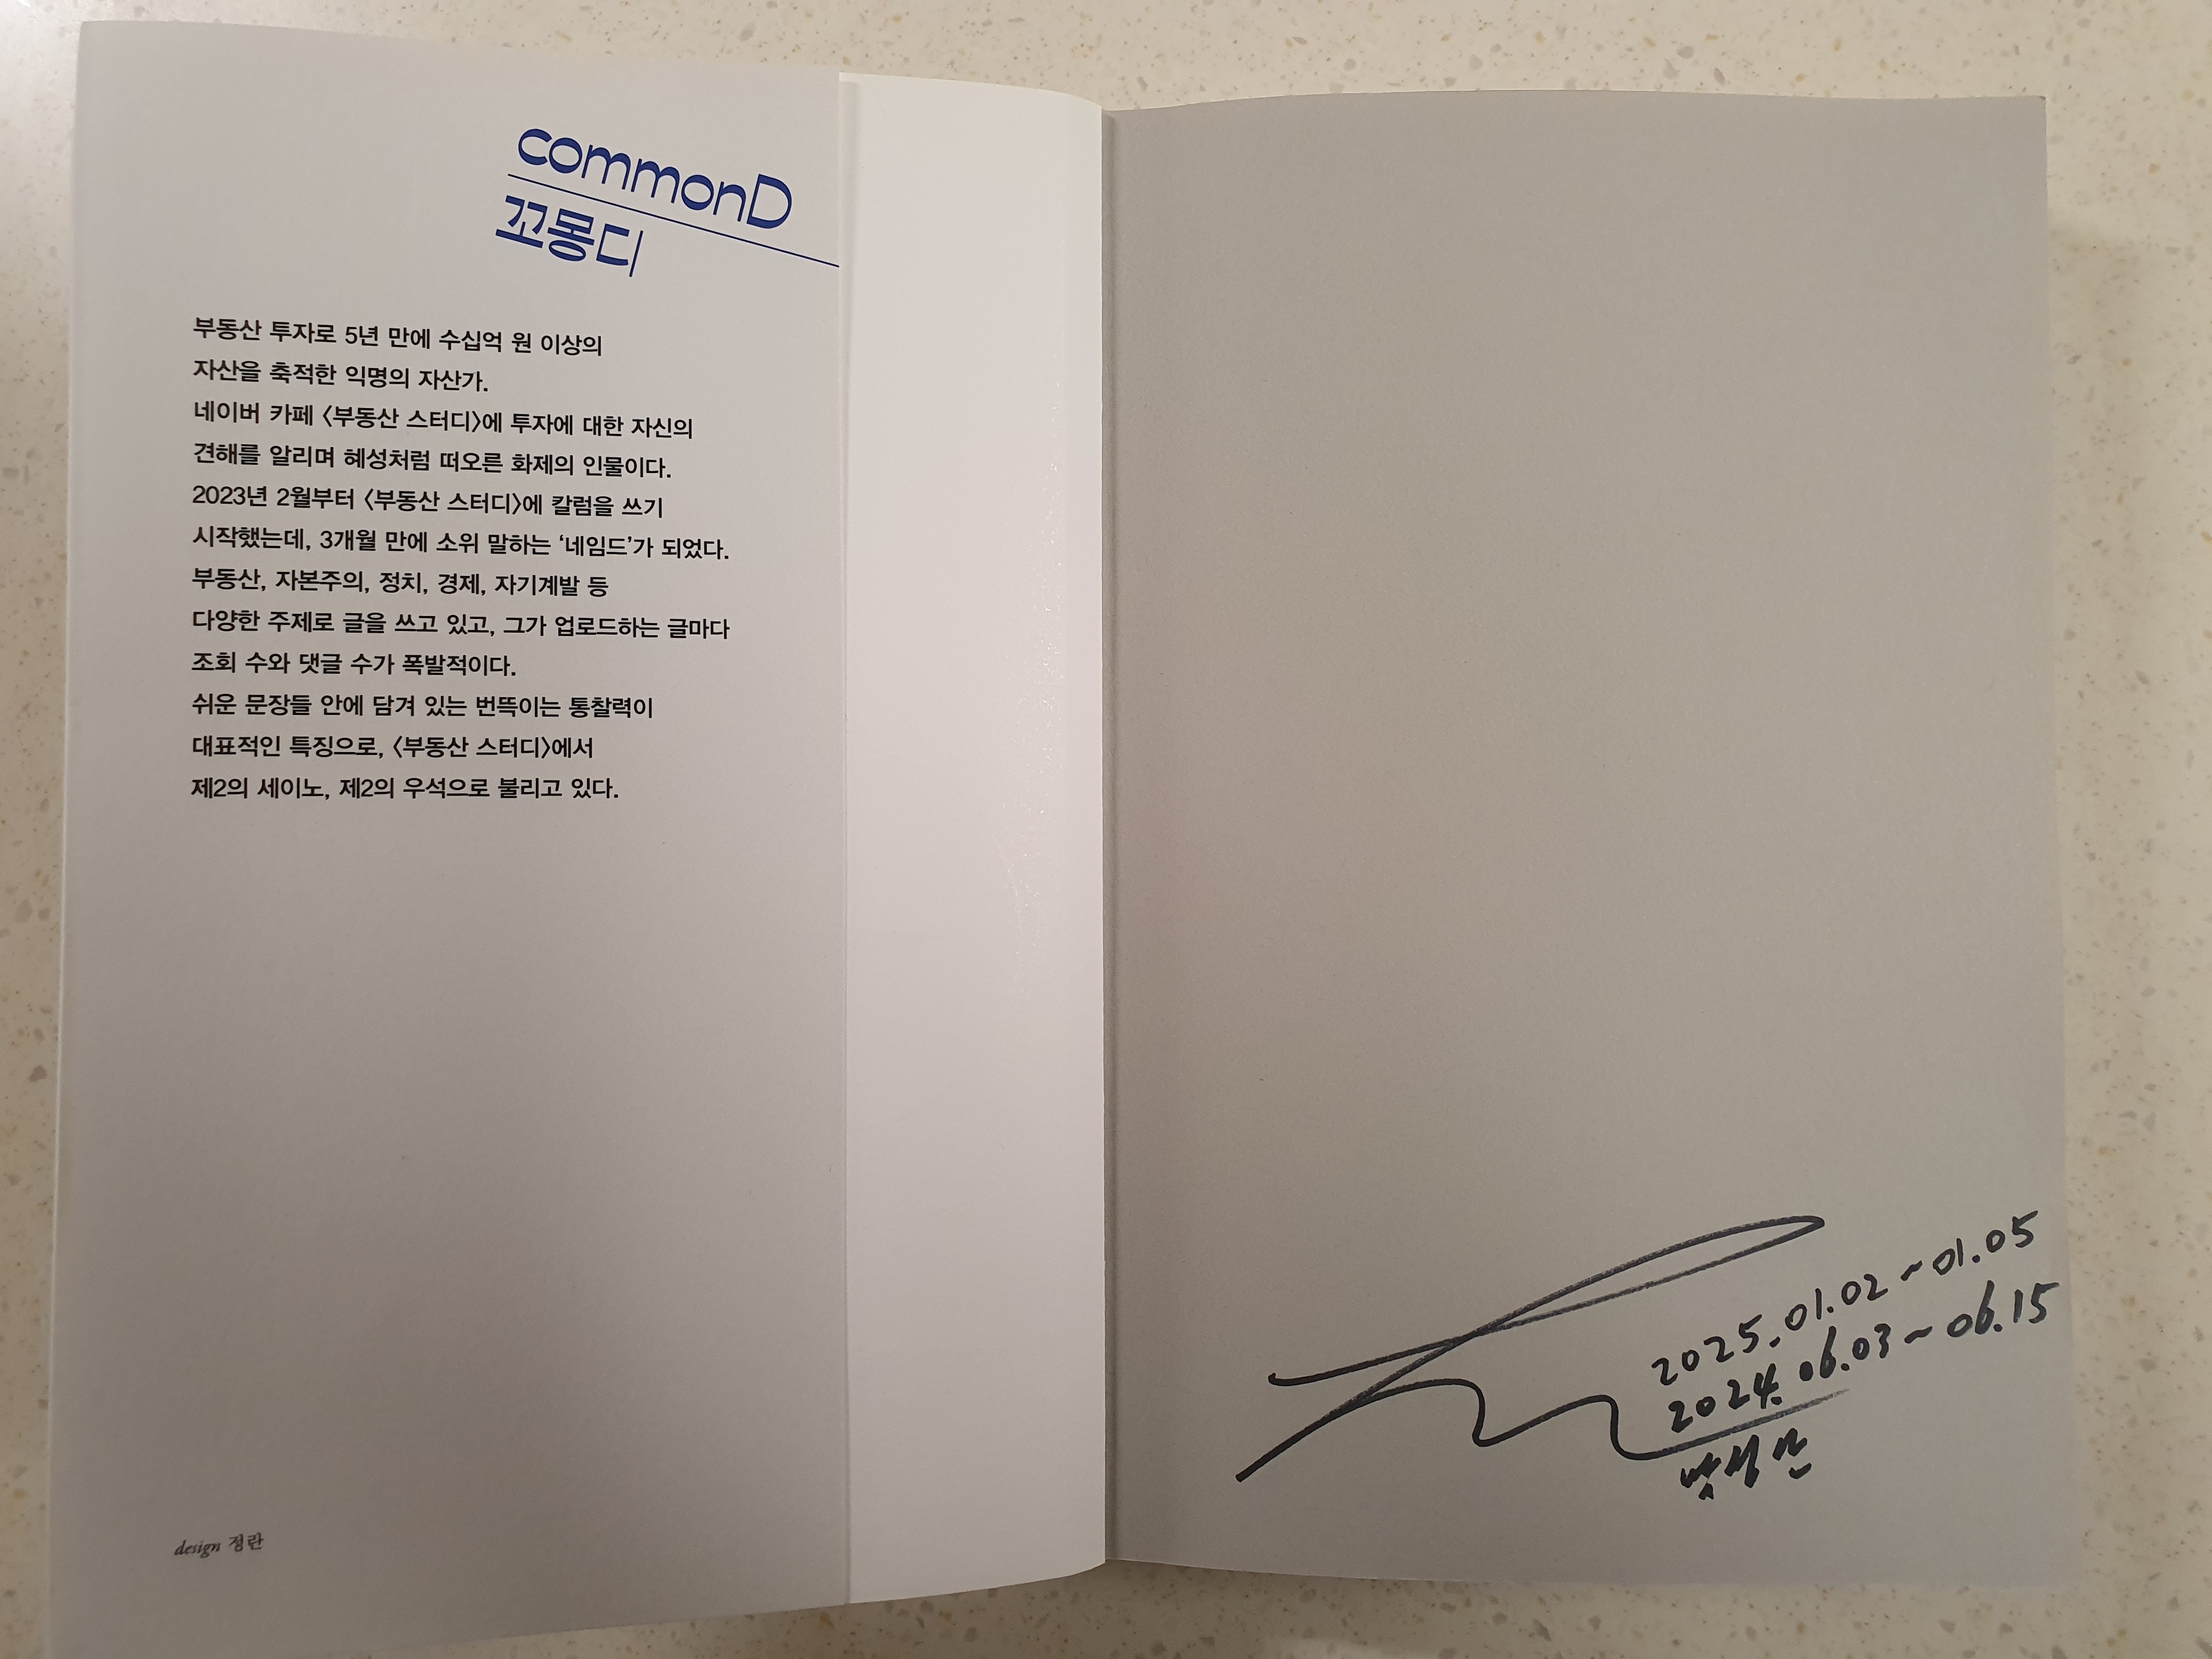 commonD
꼬몽디
부동산 투자로 5년 만에 수십억 원 이상의
자산을 축적한 익명의 자산가.
네이버 카페 〈부동산 스터디〉에 투자에 대한 자신의
견해를 알리며 혜성처럼 떠오른 화제의 인물이다.
2023년 2월부터 〈부동산 스터디〉에 칼럼을 쓰기
시작했는데, 3개월 만에 소위 말하는 ‘네임드’가 되었다.
부동산, 자본주의, 정치, 경제, 자기계발 등
다양한 주제로 글을 쓰고 있고, 그가 업로드하는 글마다
조회 수와 댓글 수가 폭발적이다.
쉬운 문장들 안에 담겨 있는 번뜩이는 통찰력이
대표적인 특징으로, 〈부동산 스터디〉에서
제2의 세이노, 제2의 우석으로 불리고 있다.
design 정란
2025.01.02~01.05
2024.06.03~06.15